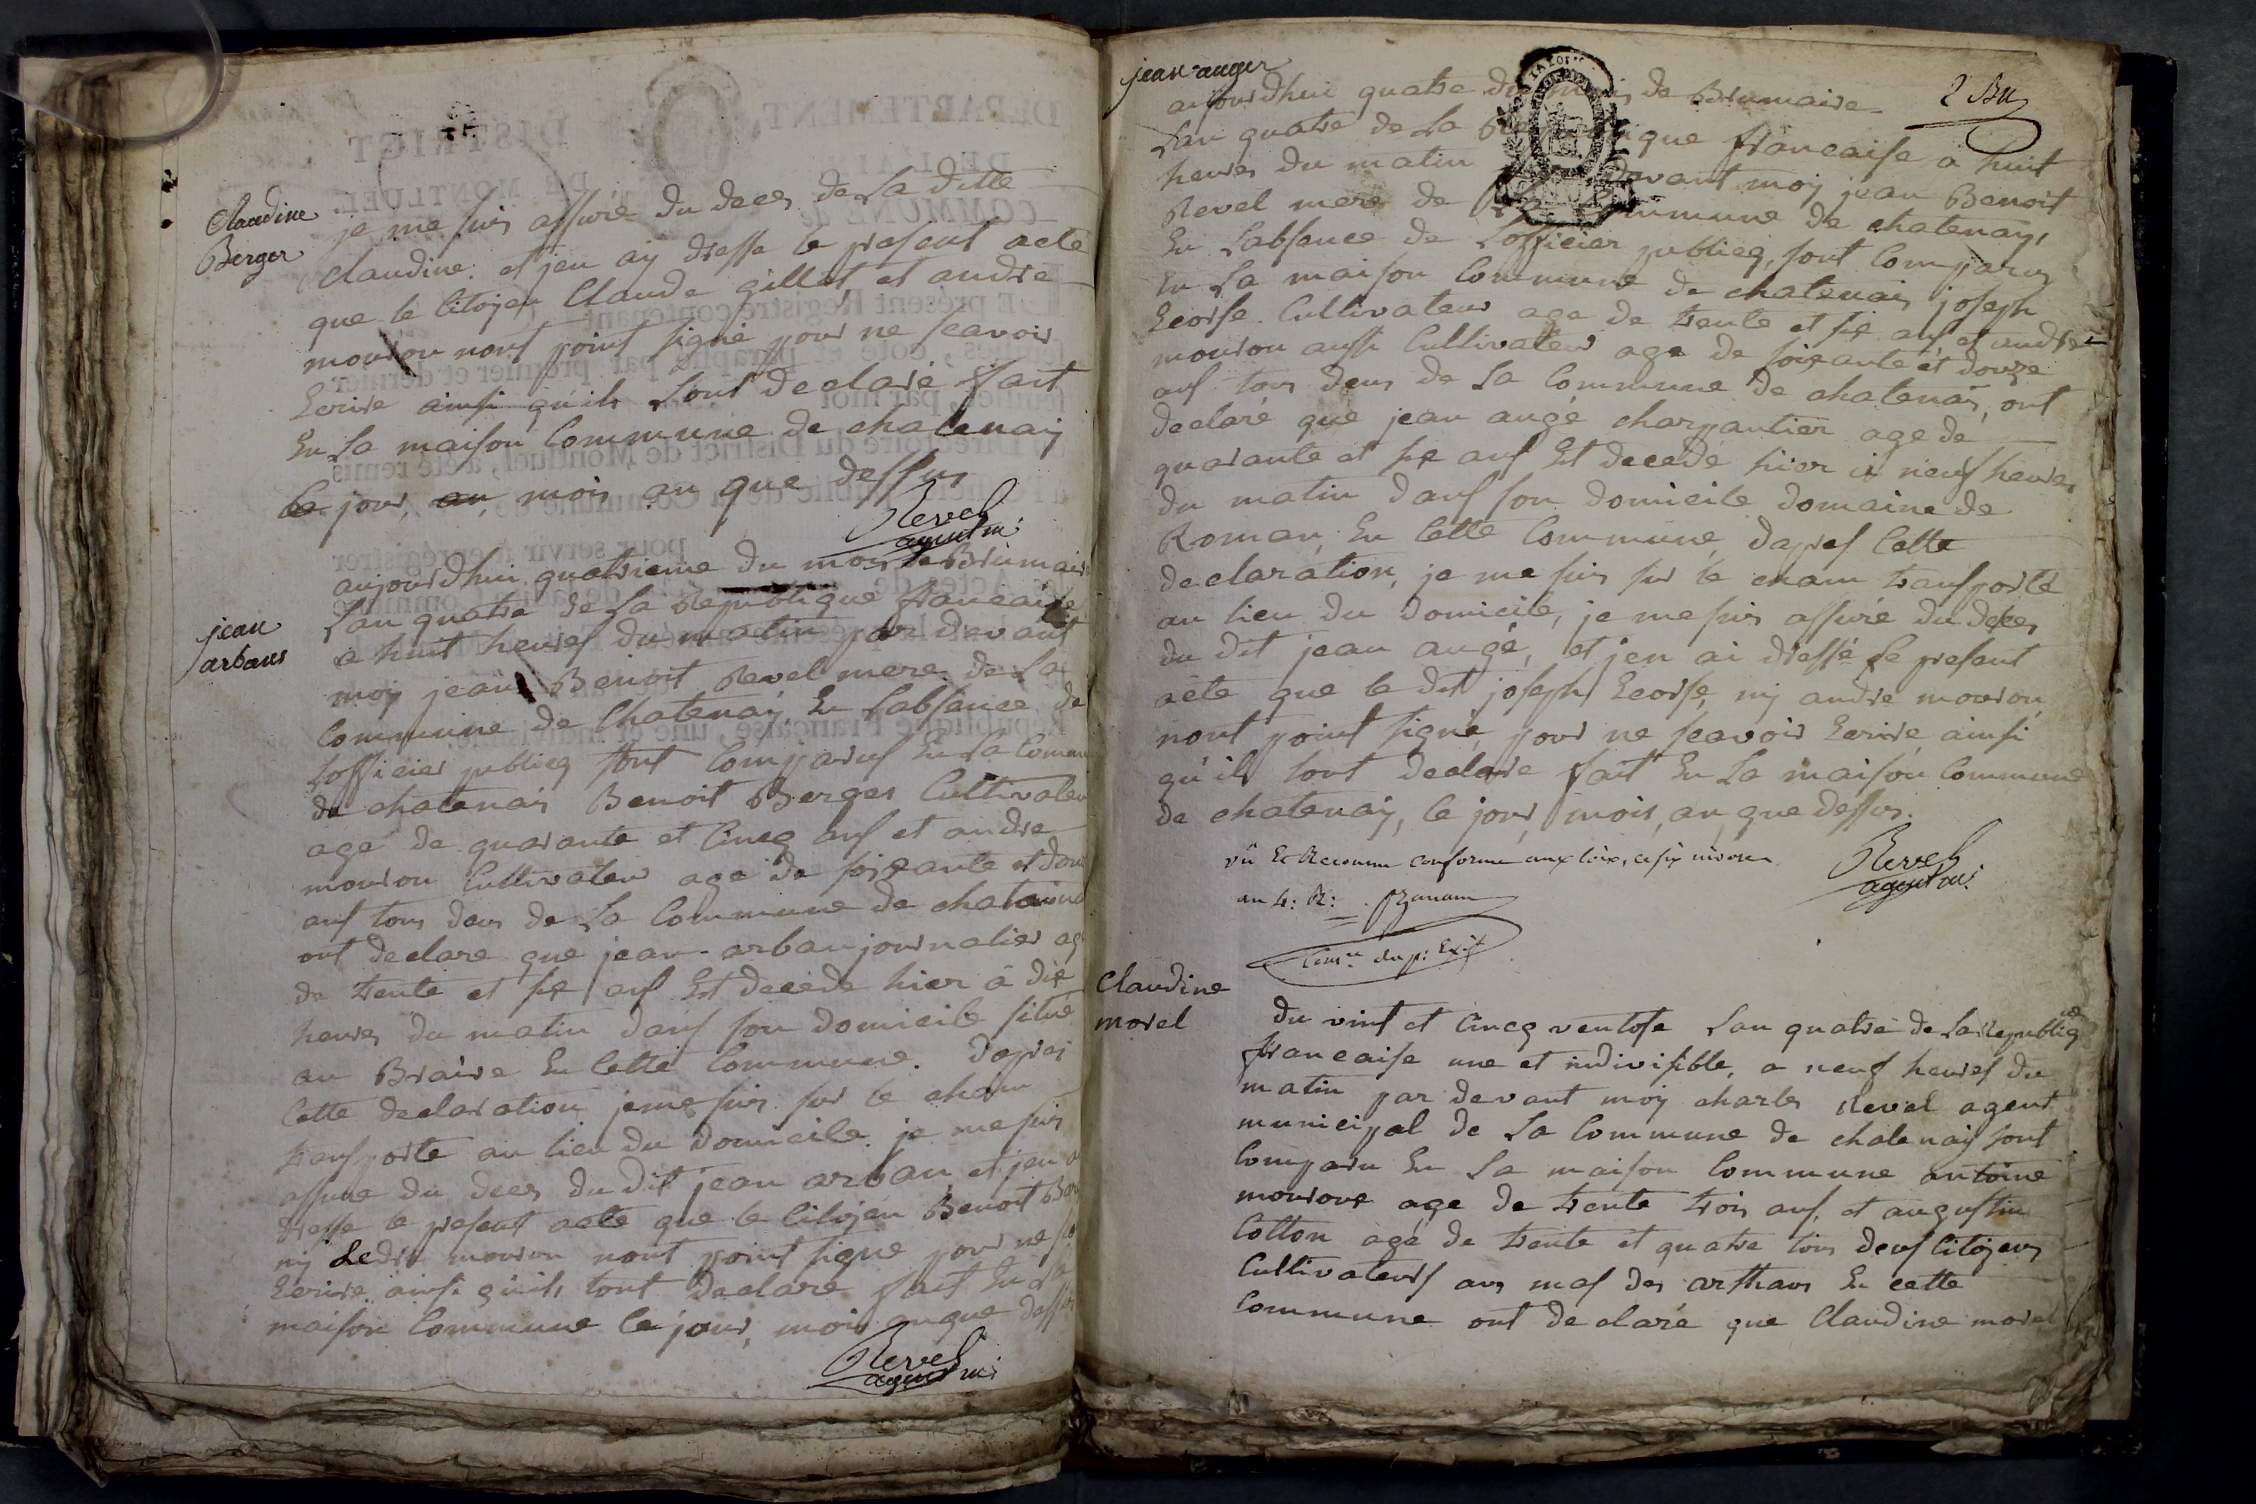 Claudine
Berger
je me suis assuré du deces de la ditte
Claudine. et jen aÿ dressé le present acte
que le Citoyen Claude gillet et andre
mouron nont point signé pour ne scavoir
Ecrire ainsi quils lont declaré fait
En la maison Commune de chatenaÿ
le jour, an, mois an que dessus
Revel
agent m:
jean
arbans
aujourdhui quatrieme du mois de Brumaire
Lan quatre de la Republique francaise
a huit heures du matin par devant
moÿ jean Benoit Revel mere de la
Commune de Chatenaÿ En Labsance de
Lofficier publicq sont Comparus En la Commu
de chatenaÿ Benoit Berger Cultivateur
agé de quarante et Cincq ans et andre
mouron Cultivateur agé de soixante et douz
ans tous deus de la Commune de chatainé
ont declare que jean arban journalier ag
de trente et six ans Est decede hier à dix
heures du matin dans son domicile situé
au Braire En Cette Commune. dapres
Cette declaration je me suis sur le cham
transporté au lieu du domicile. je me suis
assuré du deces du dit jean arban, et jen a
dresse le present acte que le Citoyen Benoit Ber
nÿ Ledre mouron nont point signe pour ne s
Ecrire ainsi quils lont declare fait En la
maison Commune le jour, mois an que dessus
Revel
agent m:
jean auger
2 Bu
aujourdhui quatre du mois de Brumaire
Lan quatre de la Republique francaise a huit
heures du matin par devant moÿ jean Benoit
Revel mere de la Commune de chatenaÿ,
En Labsance de Lofficier publicq, sont Comparus
En la maison Commune de chatenaÿ joseph
Ecorse Cultivateur age de trente et six ans et andre
mouron aussi Cultivateur age de soixante et douze
ans tous deus de la Commune de chatenaÿ, ont
declaré que jean augé charpantier age de
quarante et six ans Est decedé hier à neuf heures
du matin dans son domicile domaine de
Roman, En Cette Commune, dapres Cette
declaration, je me suis sur le cham transporté
au lieu du domicile, je me suis assuré du deces
du dit jean augé, et jen ai dressé le present
acte que le dit joseph Ecorse, nÿ andre mouron
nont point signé, pour ne scavoir Ecrire, ainsi
qu'ils lont declare fait En la maison Commune
de chatenaÿ, le jour, mois, an, que dessus.
vû Et Reconnu conforme aux loix, ce six nivose
an 4: R:
Revel
agent m:
Claudine
morel
du vint et Cincq ventose Lan quatre de la Republiq
ue
francaise une et indivisible, a neuf heures du
matin par devant moÿ charles Revel agent
municipal de La Commune de chatenaÿ sont
Comparu En La maison Commune antoine
mouroux age de trente trois ans, et augustin
Cotton agé de trente et quatre tous deus Citoyens
Cultivateurs aus mas des arthaus En cette
Commune ont declaré que Claudine morel